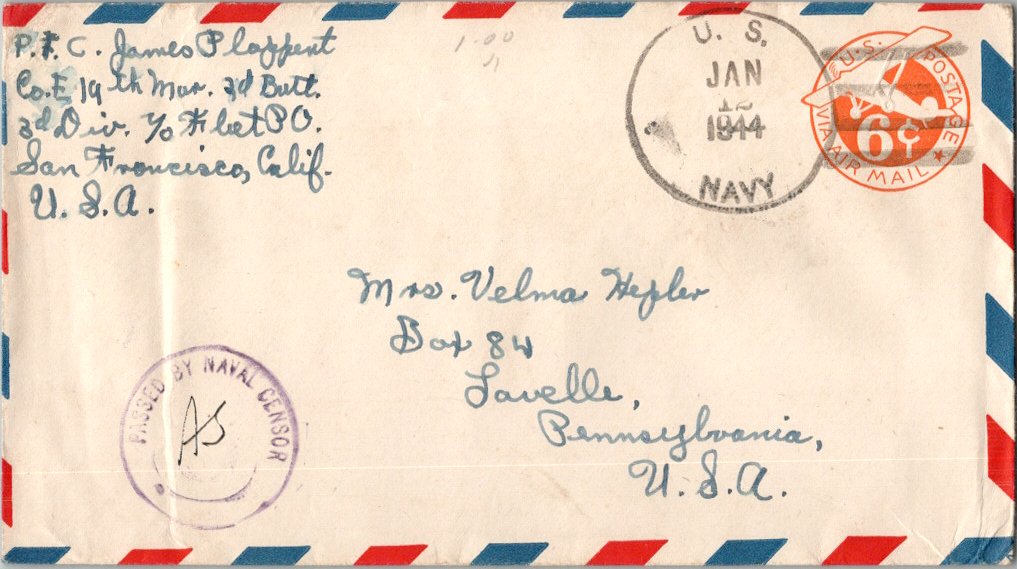 P.F.C. James Plappert
Co. E 19th Mar. 3d Batt.
3d Div. c/o Fleet P.O.
San Francisco, Calif.
U.S.A.
1-00
U. S.
JAN
12
1944
NAVY
U.S. POSTAGE
6¢
VIA AIR MAIL
Mrs. Velma Hepler
Box 84
Lavelle,
Pennsylvania,
U.S.A.
PASSED BY NAVAL CENSOR
AS